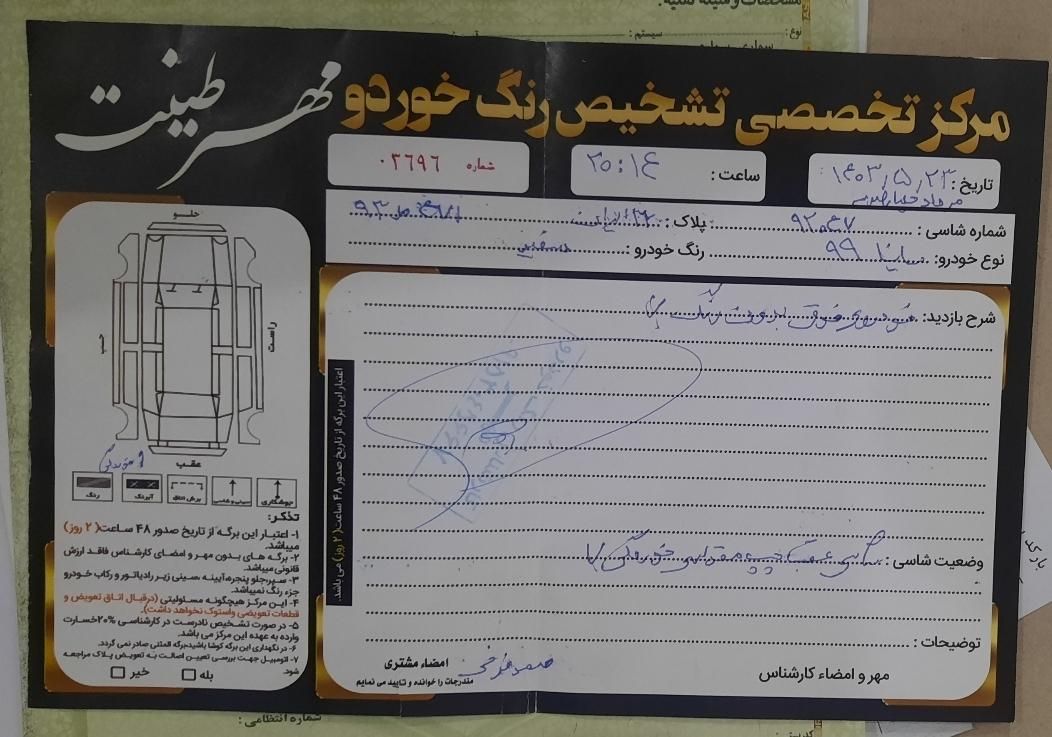 مشخصات وسیله نقلیه:
نوع:
سیستم:
سواری
مرکز تخصصی تشخیص رنگ خوردو
مهر طینت
تاریخ: ۱۴۰۳/۵/۲۳
ساعت: ۲۰:۱۴
شماره ۰۲۶۹۶
شماره شاسی:
پلاک:
نوع خودرو: ساینا ۹۹
رنگ خودرو:
شرح بازدید: خودروی فوق بدون رنگ
وضعیت شاسی: شاسی عقب چپ مقداری خوردگی
توضیحات:
مهر و امضاء کارشناس
امضاء مشتری
مندرجات را خوانده و تایید می نمایم
اعتبار این برگه از تاریخ صدور ۴۸ ساعت (۲ روز) می باشد.
جلو
چپ
راست
عقب
خوردگی
جوشکاری
سینی و شاسی
برش اتاق
آبرنگ
رنگ
تذکر:
۱- اعتبار این برگه از تاریخ صدور ۴۸ ساعت (۲ روز)
میباشد.
۲- برگه های بدون مهر و امضای کارشناس فاقد ارزش
قانونی میباشد.
۳- سپرجلو پنجره،آیینه،سینی زیر رادیاتور و رکاب خودرو
جزء رنگ نمیباشد.
۴- این مرکز هیچگونه مسئولیتی (درقبال اتاق تعویض و
قطعات تعویضی واستوک نخواهد داشت).
۵- در صورت تشخیص نادرست در کارشناسی ۲۰% خسارت
وارده به عهده این مرکز می باشد.
۶- در نگهداری این برگه کوشا باشید،برگه المثنی صادر نمی گردد.
۷- اتومبیل جهت بررسی تعیین اصالت به تعویض پلاک مراجعه
شود.
بله
خیر
شماره انتظامی: